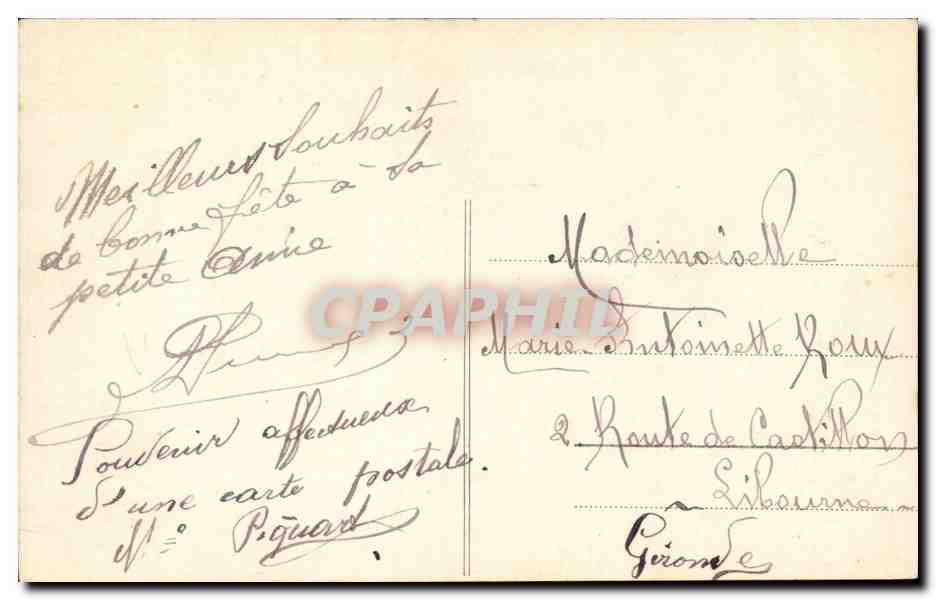 Meilleurs Souhaits
de bonne fête à Sa
petite Amie
Souvenir affectueux
d'une carte postale.
Piquard
Mademoiselle
Marie-Antoinette Roux
2 Route de Castillon
Libourne
Gironde
CPAPHIL